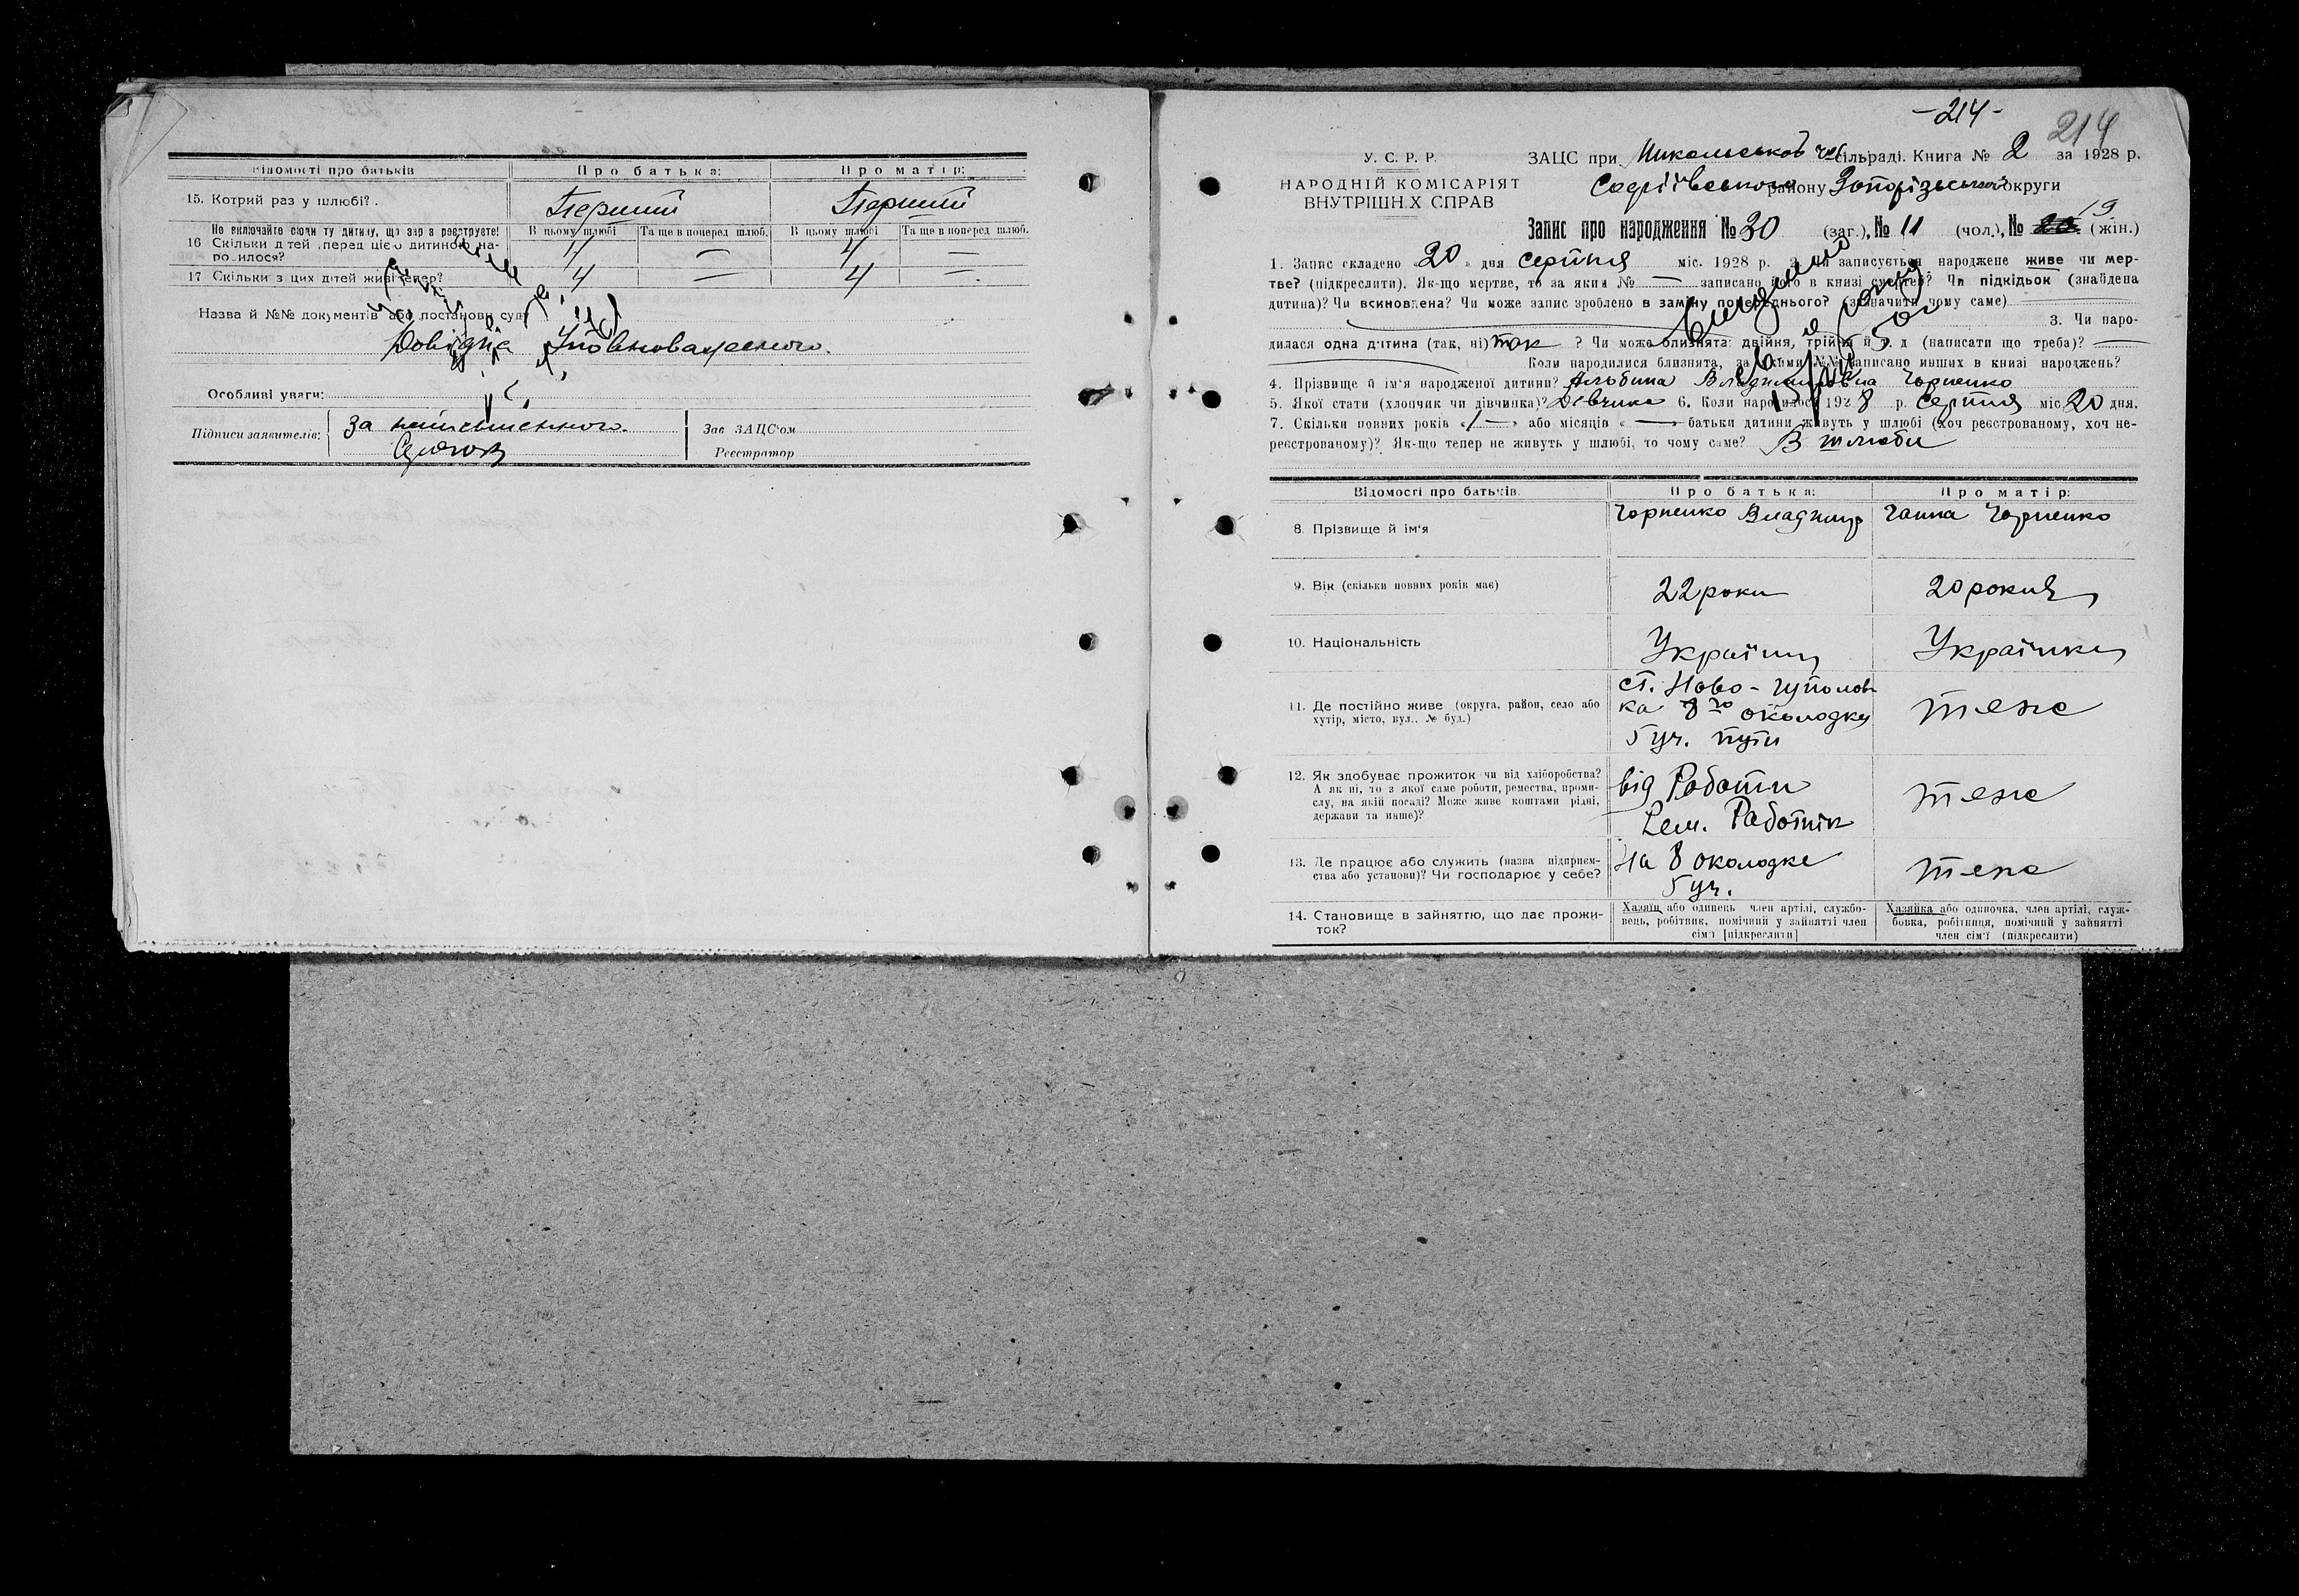 Відомості про батьків
Про батька:
Про матір:
15. Котрий раз у шлюбі?
Перший
Перший
Не включайте сюди ту дитину, що зараз реєструєте!
В цьому шлюбі
Та ще в поперед шлюб.
В цьому шлюбі
Та ще в поперед шлюб.
16 Скільки дітей перед цією дитиною на-
родилося?
4
—
4
—
17 Скільки з цих дітей живі тепер?
4
—
4
—
Назва й №№ документів або постанови суду
Довідка Уповноваженого.
Особливі уваги:
Підписи заявителів:
За
Зав ЗАЦС'ом
Реєстратор
-214-
214
У. С. Р. Р.
НАРОДНІЙ КОМІСАРІЯТ
ВНУТРІШНІХ СПРАВ
ЗАЦС при сільраді. Книга № 2 за 1928 р.
району Запорізької округи
Запис про народження № 30 (заг.), № 11 (чол.), № 19 (жін.)
1. Запис складено „20„ дня серпня міс. 1928 р. 2. Чи записується народжене живе чи мер-
тве? (підкреслити). Як-що мертве, то за яким № — записано його в книзі смертей? Чи підкідьок (знайдена
дитина)? Чи всиновлена? Чи може запис зроблено в заміну попереднього? (зазначити чому саме)
3. Чи наро-
дилася одна дитина (так, ні) так ? Чи може близнята: двійня, трійня й т. д (написати що треба)? —
Коли народилися близнята, за якими №№ записано инших в книзі народжень?
4. Прізвище й ім'я народженої дитини? Альбина Владимировна Чорненко
5. Якої статі (хлопчик чи дівчинка)? Дівчинка 6. Коли народилось 1928 р. серпня міс. 20 дня.
7. Скільки повних років „1—„ або місяців „—„ батьки дитини живуть у шлюбі (хоч реєстрованому, хоч не-
реєстрованому)? Як-що тепер не живуть у шлюбі, то чому саме? В шлюби
Відомості про батьків
Про батька:
Про матір:
8. Прізвище й ім'я
Чорненко Владимир
Ганна Чорненко
9. Вік (скільки повних років має)
22 роки
20 роки
10. Національність
Українец
Українка
11. Де постійно живе (округа, район, село або
хутір, місто, вул., № буд.)
ст. Ново-Гуполов
ка 8го околодку
5 уч. пути
теж
12. Як здобуває прожиток чи від хліборобства?
А як ні, то з якої саме роботи, ремества, проми-
слу, на якій посаді? Може живе коштами рідні,
держави та инше)?
від Работи
Рем. Работнік
теж
13. Де працює або служить (назва підприєм-
ства або установи)? Чи господарює у себе?
На 8 околодке
5 уч.
теж
14. Становище в зайняттю, що дає прожи-
ток?
Хазяїн або одинець член артілі, службо-
вець, робітник, помічний у зайнятті член
сім'ї [підкреслити]
Хазяйка або одиночка, член артілі, служ-
бовка, робітниця, помічний у зайнятті
член сім'ї (підкреслити)